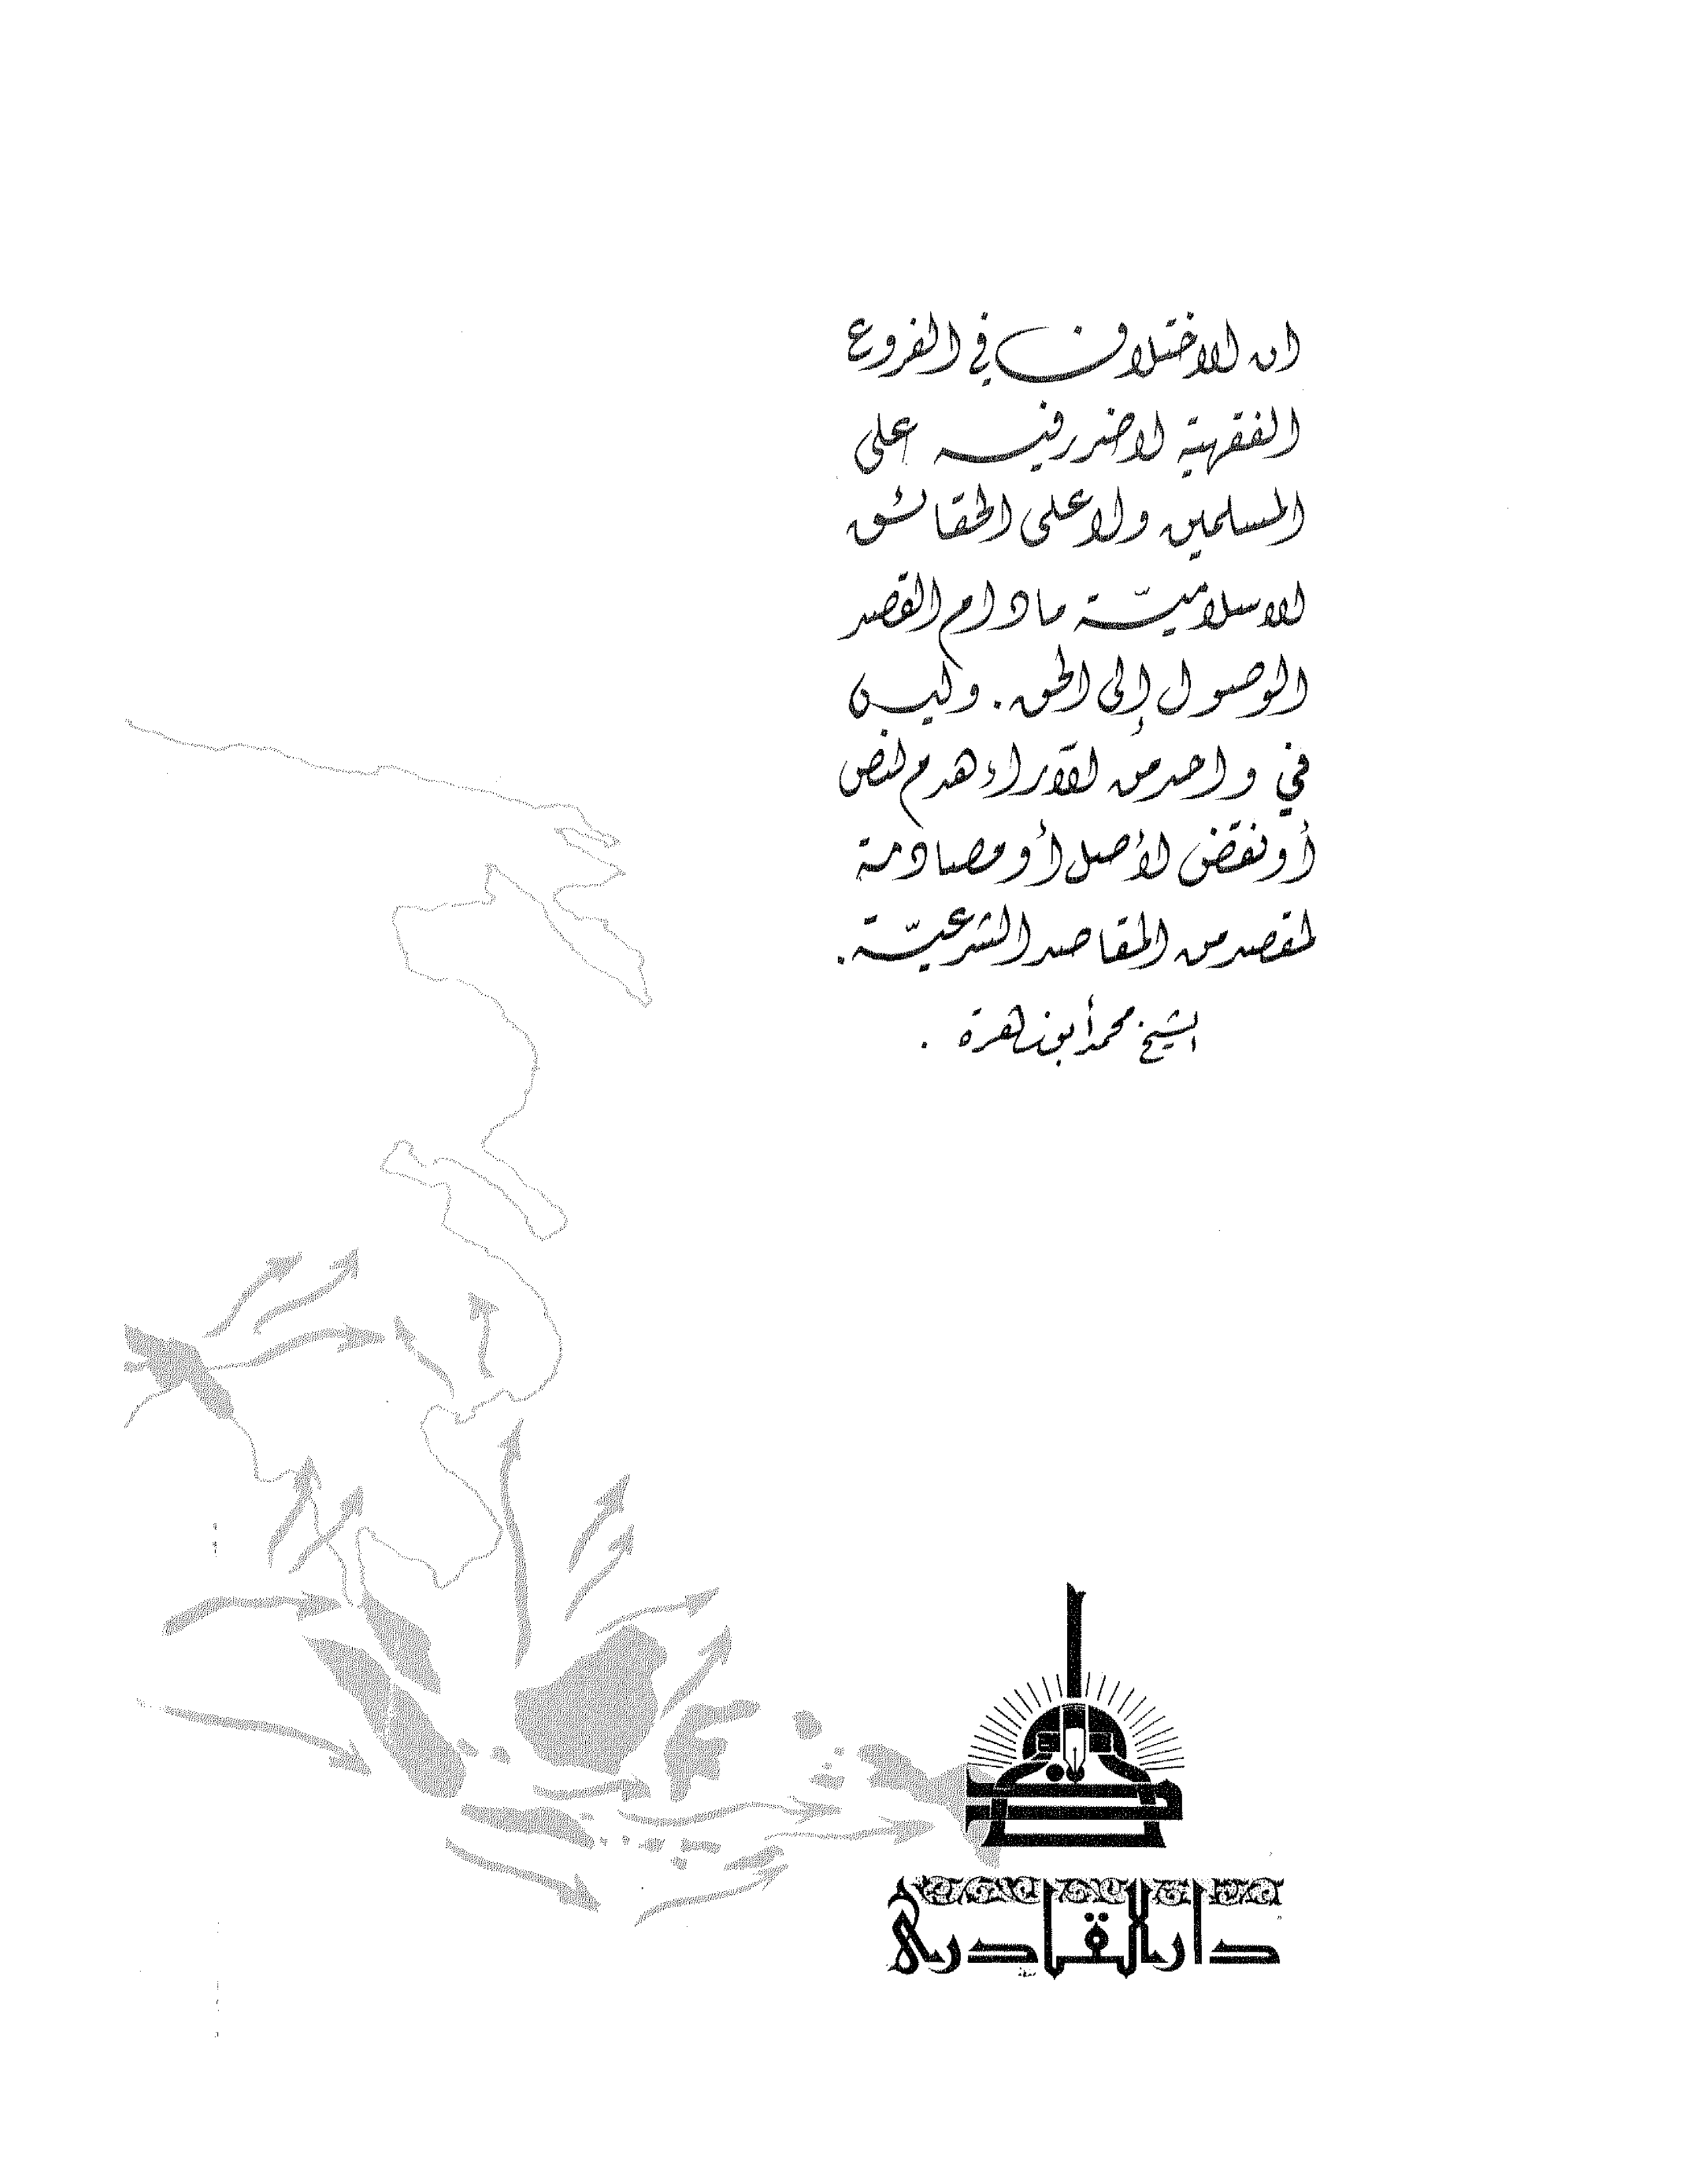 ان الاختلاف في الفروع
الفقهية لا ضرر فيه على
المسلمين ولا على الحقائق
الاسلاميّة مادام القصد
الوصول إلى الحق. وليس
في واحد من الآراء هدم لنص
أو نقض لأصل أو مصادمة
لمقصد من المقاصد الشرعيّة.
الشيخ محمد أبو زهرة .
دار القادري